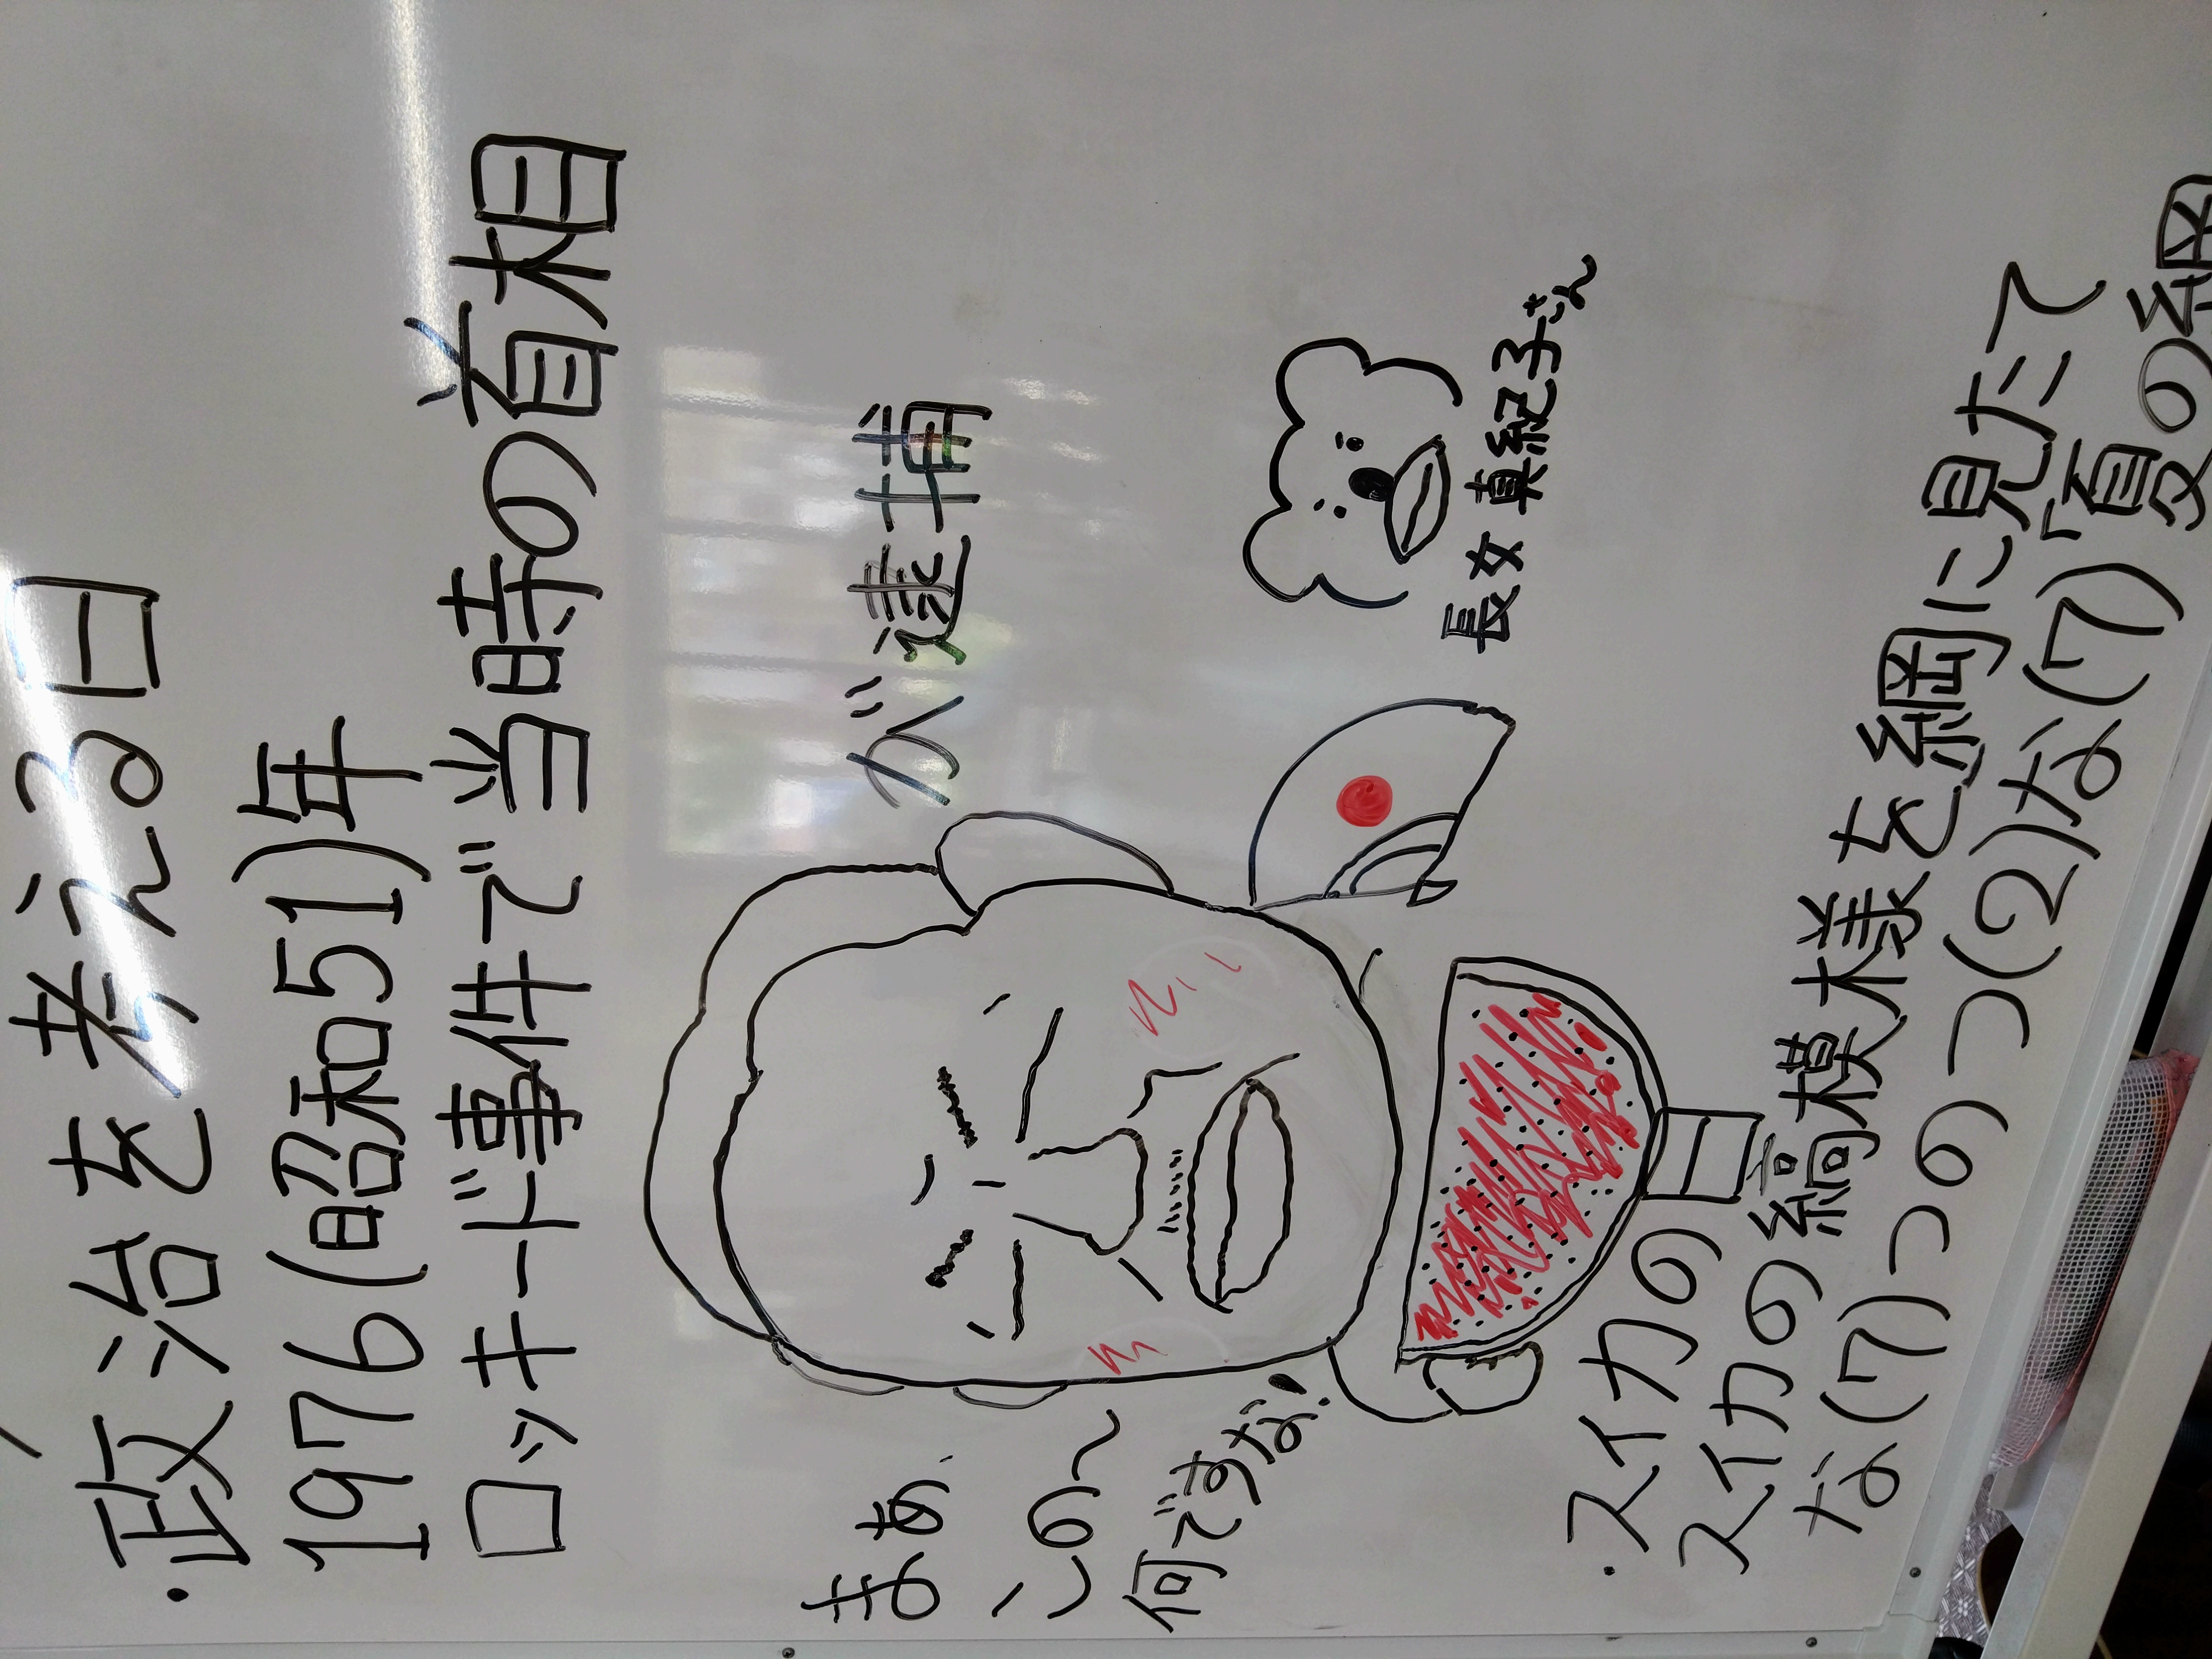 ・政治を考える日
1976(昭和51)年
ロッキード事件で当時の首相
が逮捕
まぁ、
この〜
何ですな!
長女 真紀子さん
・スイカの日
スイカの縞模様を綱に見たて
な(7)つのつ(2)な(7)「夏の綱